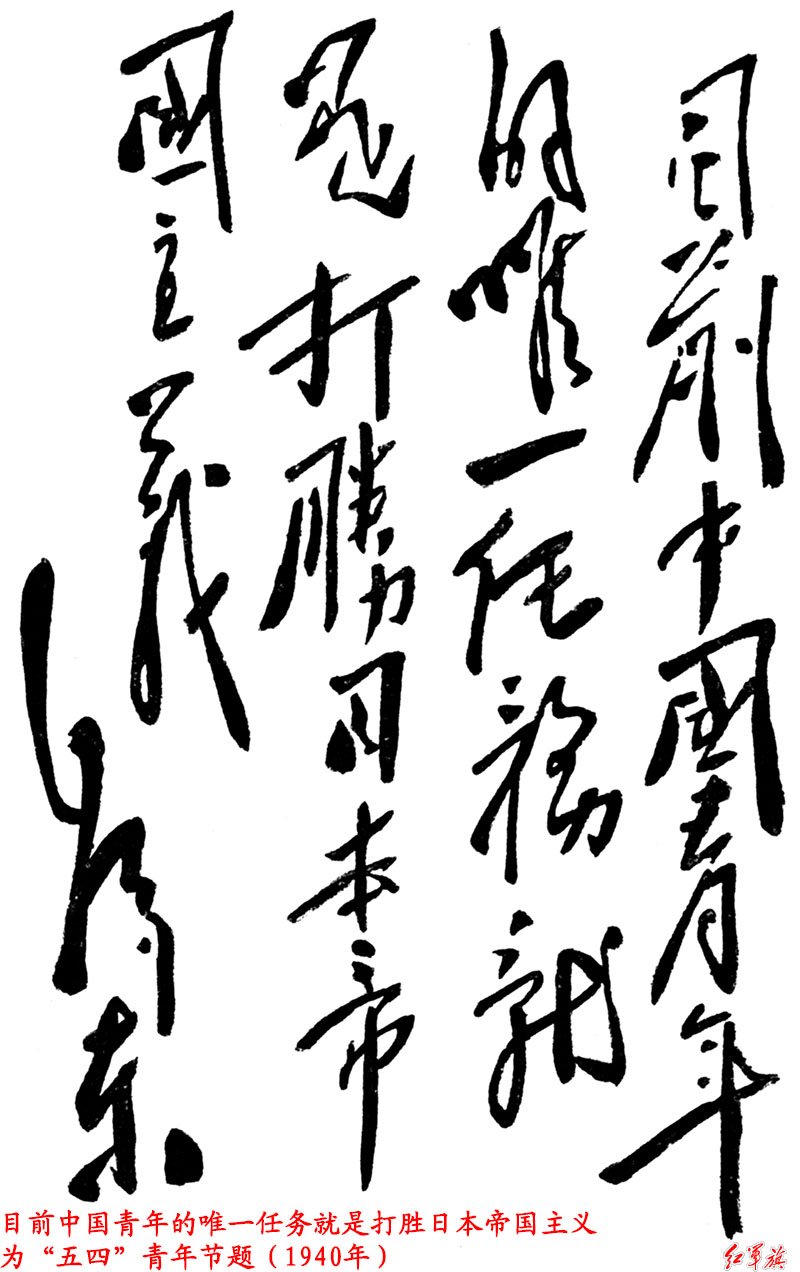 目前中國青年
的唯一任務就
是打勝日本帝
國主義
毛澤东
目前中国青年的唯一任务就是打胜日本帝国主义
为“五四”青年节题（1940年）
红军旗